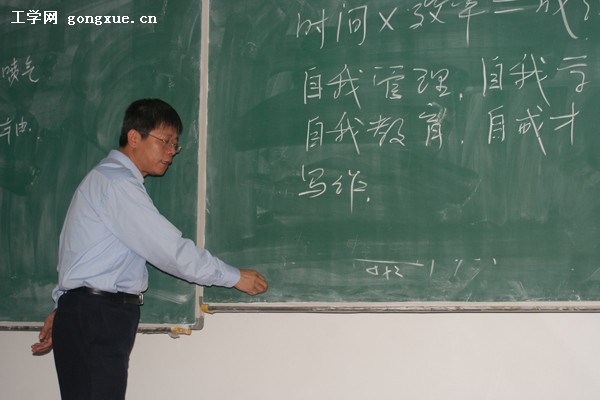 工学网 gongxue.cn
喷气
时间×效率=成
自我管理.自我学
自我教育.自我成才
写作.